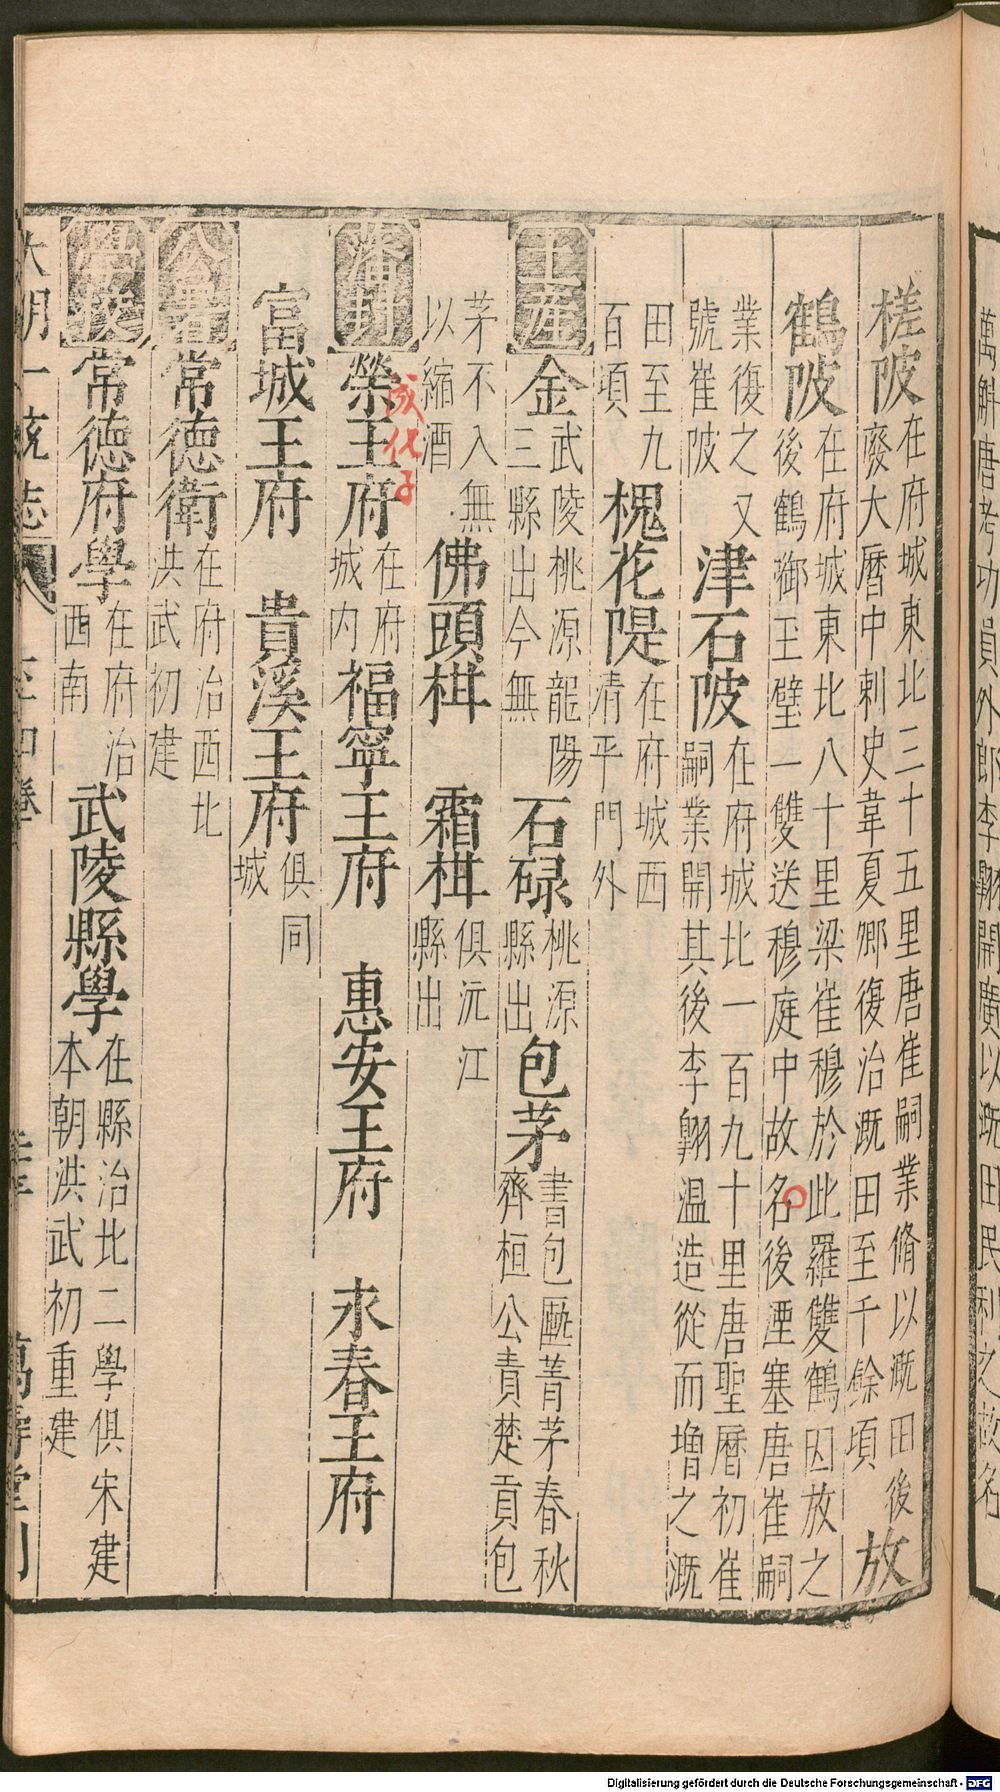 萬斛唐考功員外郎李翺開廣以溉田民利之故名
槎陂在府城東北三十五里唐崔嗣業脩以溉田後廢大曆中刺史韋夏卿復治溉田至千餘頃放
鶴陂在府城東北八十里梁崔穆於此羅雙鶴因放之後鶴御玉璧一雙送穆庭中故名後湮塞唐崔嗣
業復之又號崔陂津石陂在府城北一百九十里唐聖曆初崔嗣業開其後李翺溫造從而增之溉
田至九百頃槐花隄在府城西清平門外
土産金武陵桃源龍陽三縣出今無石碌桃源縣出包茅書包匭菁茅春秋齊桓公責楚貢包
茅不入無以縮酒佛頭柑霜柑俱沅江縣出
藩封榮王府在府城内福寧王府惠安王府永春王府
成化子
富城王府貴溪王府俱同城
公署常德衛在府治西北洪武初建
學校常德府學在府治西南武陵縣學在縣治北二學俱宋建本朝洪武初重建
大明一統志六十四卷 萬壽堂刊
Digitalisierung gefördert durch die Deutsche Forschungsgemeinschaft - DFG